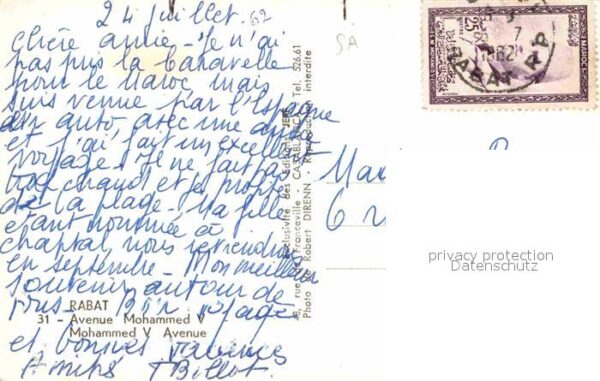 24 juillet 62
Chère amie - Je n'ai
pas pris la caravelle
pour le Maroc mais
suis venue par l'Espagne
en auto, avec une amie
et j'ai fait un excellent
voyage - Je ne fait pas
trop chaud et je profite
de la plage - Ma fille
étant nommée à
chaptal, nous reviendrons
en septembre - Mon meilleur
souvenir autour de
vous - Bon voyage
et bonnes vacances
Amitiés
SA
RABAT
31 - Avenue Mohammed V
Mohammed V Avenue
Exclusivité des Editions JEFF
rue de Franceville - CASABLANCA - Tel. 526.61
Photo Robert DIRENN - Reproduction interdite
25
MAROC
7
1962
RABAT R.P.
privacy protection
Datenschutz